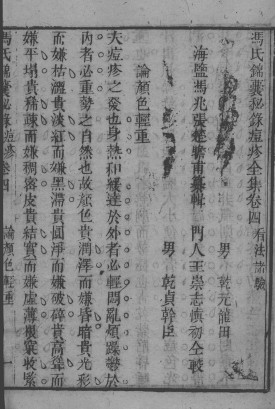 馮氏錦囊秘錄痘疹全集卷四 看法論驗
男 乾元龍田
海鹽馮兆張楚瞻甫纂輯 門人王崇志慎初仝較
男 乾貞幹臣
論顏色輕重
夫痘疹之發也身熱和緩達於外者必輕悶亂煩躁鬱於
內者必重勢之自然也故顏色貴潤澤而嫌昏暗貴光彩
而嫌枯濇貴淡紅而嫌黑滯貴圓淨而嫌破碎貴高聳而
嫌平塌貴稀疎而嫌稠密皮貴結實而嫌虛薄穠窠收靨
馮氏錦囊秘錄痘疹卷四 論顏色輕重 一